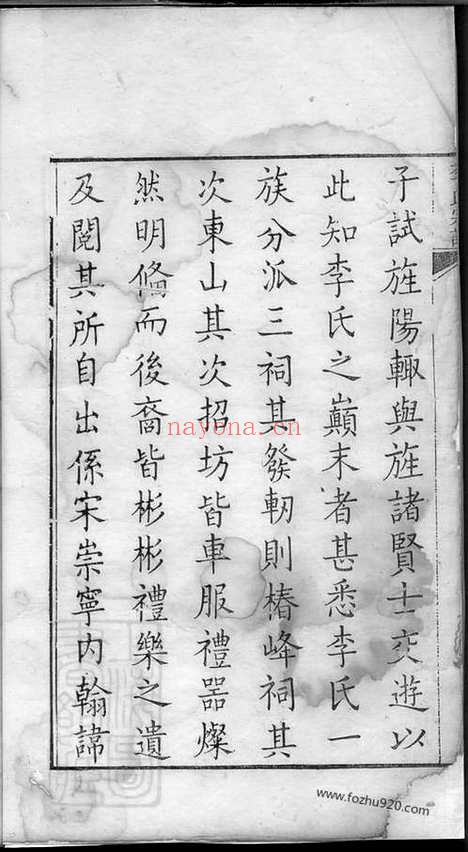 子試旌陽輙與旌諸賢士交遊以
此知李氏之巔末者甚悉李氏一
族分派三祠其發軔則椿峰祠其
次東山其次招坊皆車服禮器燦
然明俻而後裔皆彬彬禮樂之遺
及閱其所自出係宋崇寧内翰諱
nayona.cn
www.fozhu920.com